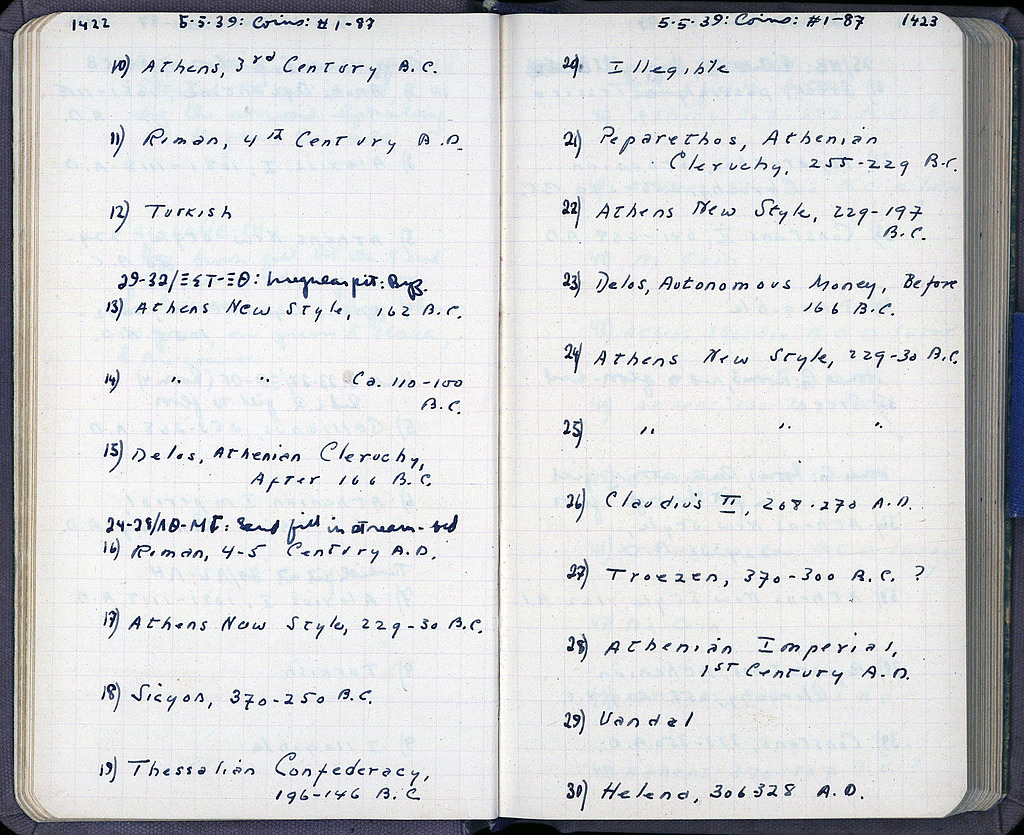 1422 5-5-39: Coins: #1-87
10) Athens, 3rd Century B.C.
11) Roman, 4th Century A.D.
12) Turkish
29-32/ΞΣΤ-ΞΘ: Irregular pit: Byz.
13) Athens New Style, 162 B.C.
14) " " Ca. 110-100
B.C.
15) Delos, Athenian Cleruchy,
After 166 B.C.
24-28/ΛΘ-ΜΓ: Sand fill in stream-bed
16) Roman, 4-5 Century A.D.
17) Athens New Style, 229-30 B.C.
18) Sicyon, 370-250 B.C.
19) Thessalian Confederacy,
196-146 B.C.
5-5-39: Coins: #1-87 1423
20) Illegible
21) Peparethos, Athenian
Cleruchy, 255-229 B.C.
22) Athens New Style, 229-197
B.C.
23) Delos, Autonomous Money, Before
166 B.C.
24) Athens New Style, 229-30 B.C.
25) " " "
26) Claudius II, 268-270 A.D.
27) Troezen, 370-300 B.C. ?
28) Athenian Imperial,
1st Century A.D.
29) Vandal
30) Helena, 306328 A.D.